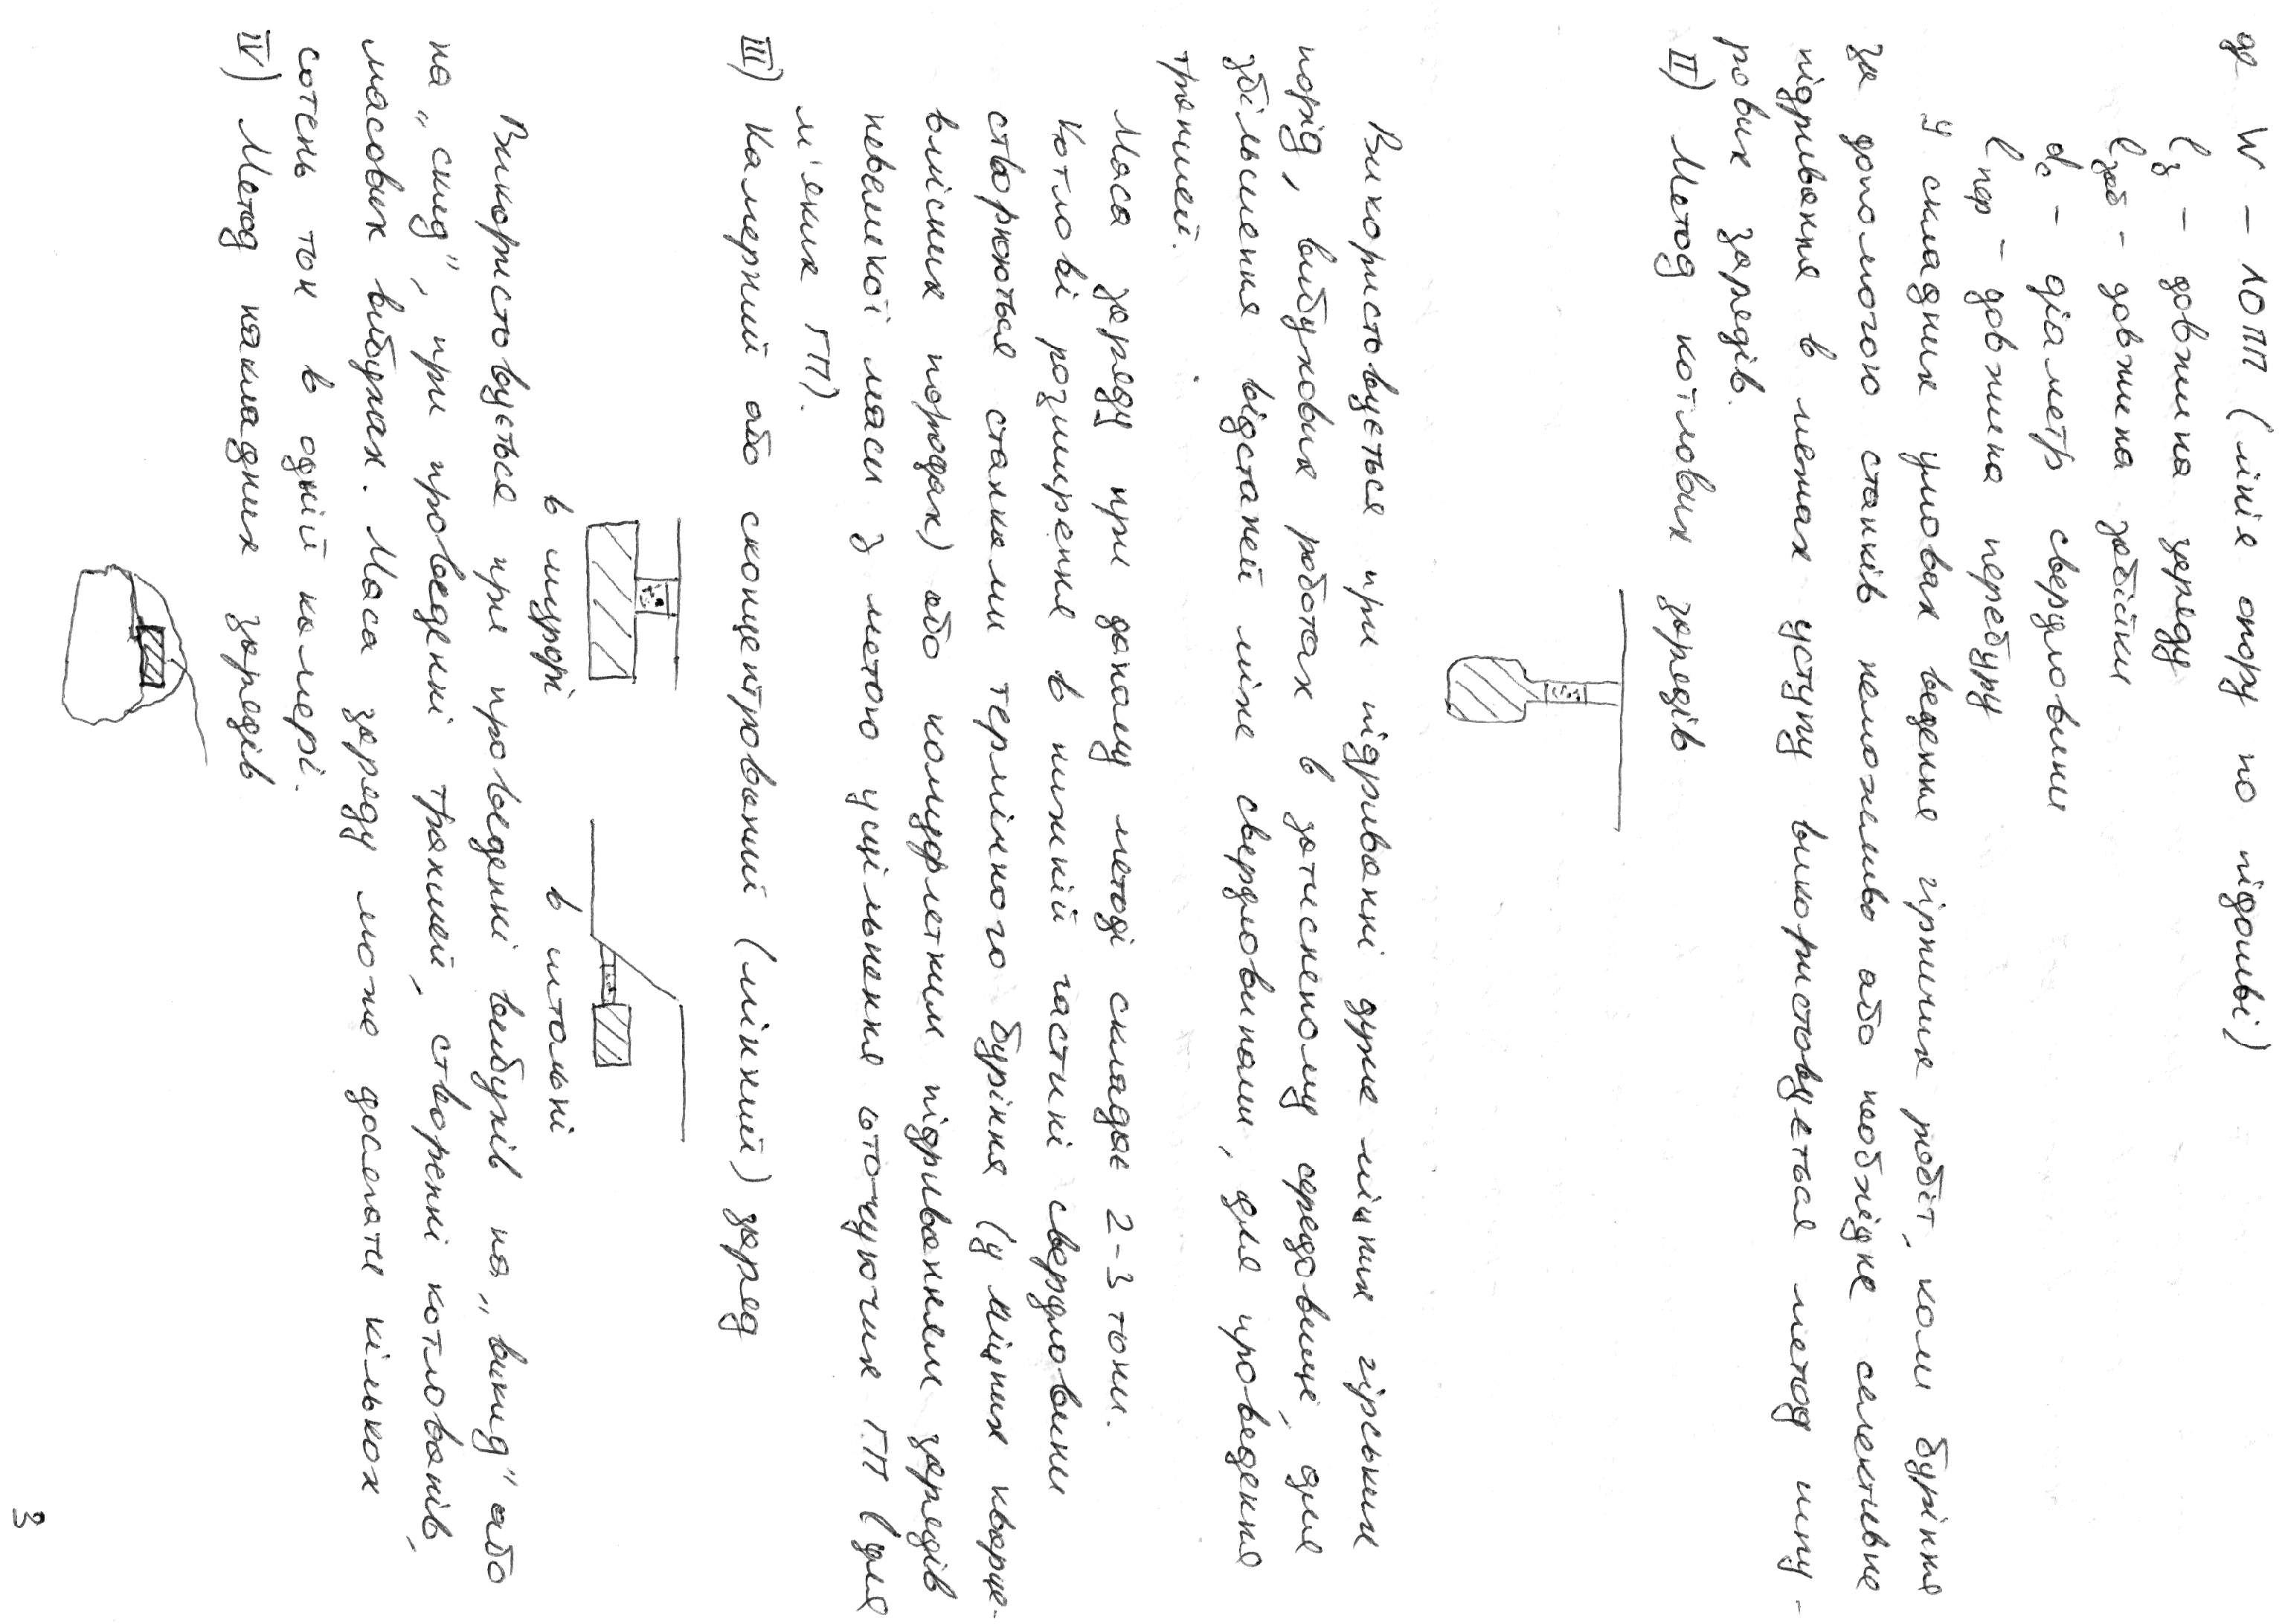 де W – ЛОПП (лінія опору по підошві)
lз – довжина заряду
lзаб – довжина забійки
dс – діаметр свердловини
lпер – довжина перебуру
У складних умовах ведення гірничих робіт, коли буріння
за допомогою станків неможливо або необхідне селективне
підривання в межах уступу використовується метод шпу-
рових зарядів.
II) Метод котлових зарядів
Використовується при підриванні дуже міцних гірських
порід, вибухових роботах в затисненому середовищі, для
збільшення відстаней між свердловинами, для проведення
траншей.
Маса заряду при даному методі складає 2-3 тони.
Котлові розширення в нижній частині свердловини
створюються станками термічного буріння (у міцних кварце-
вмісних породах) або камуфлетним підриванням зарядів
невеликої маси з метою ущільнення оточуючих ГП (для
м'яких ГП).
III) Камерний або сконцентрований (мінний) заряд
в шурфі в штольні
Використовується при проведенні вибухів на „викид" або
на „скид", при проведенні траншей, створенні котлованів,
масових вибухах. Маса заряду може досягати кількох
сотень тон в одній камері.
IV) Метод накладних зарядів
3